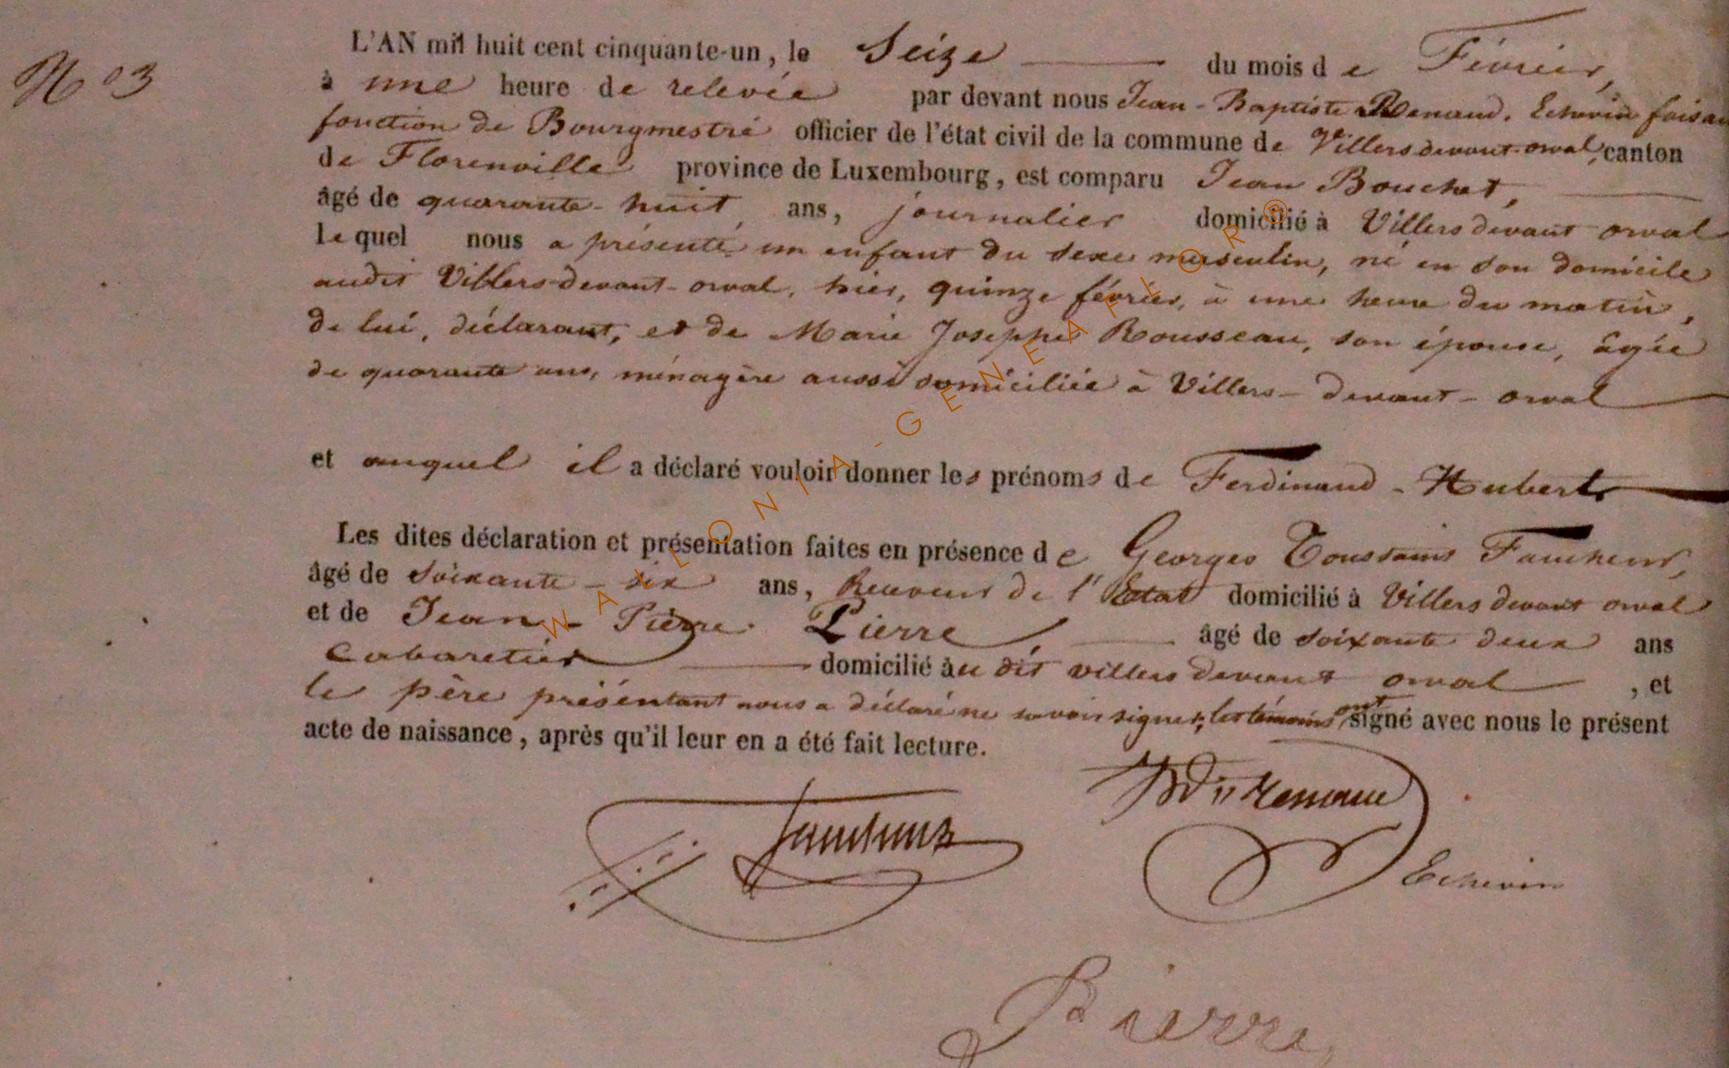 N° 3
L'AN mil huit cent cinquante-un, le Seize du mois de Février,
à une heure de relevée par devant nous Jean-Baptiste Renaud, Echevin faisan
fonction de Bourgmestre officier de l'état civil de la commune de Villers devant orval, canton
de Florenville province de Luxembourg, est comparu Jean Bouchat,
âgé de quarante-huit ans, journalier domicilié à Villers devant orval
lequel nous a présenté un enfant du sexe masculin, né en son domicile
audit Villers-devant-orval, hier, quinze février, à une heure du matin,
de lui, déclarant, et de Marie Josephe Rousseau, son épouse, âgée
de quarante ans, ménagère aussi domiciliée à Villers-devant-orval
et auquel il a déclaré vouloir donner les prénoms de Ferdinand-Hubert
Les dites déclaration et présentation faites en présence de Georges Toussaint
âgé de soixante-six ans, Receveur de l'Etat domicilié à Villers devant orval
et de Jean-Pierre Pierre, âgé de soixante deux ans
Cabaretier domicilié au dit villers devant orval, et
le père présentant nous a déclaré ne savoir signer, les témoins ont signé avec nous le présent
acte de naissance, après qu'il leur en a été fait lecture.
Echevin
Pierre
WALLONIA-GENEAFLOR ®